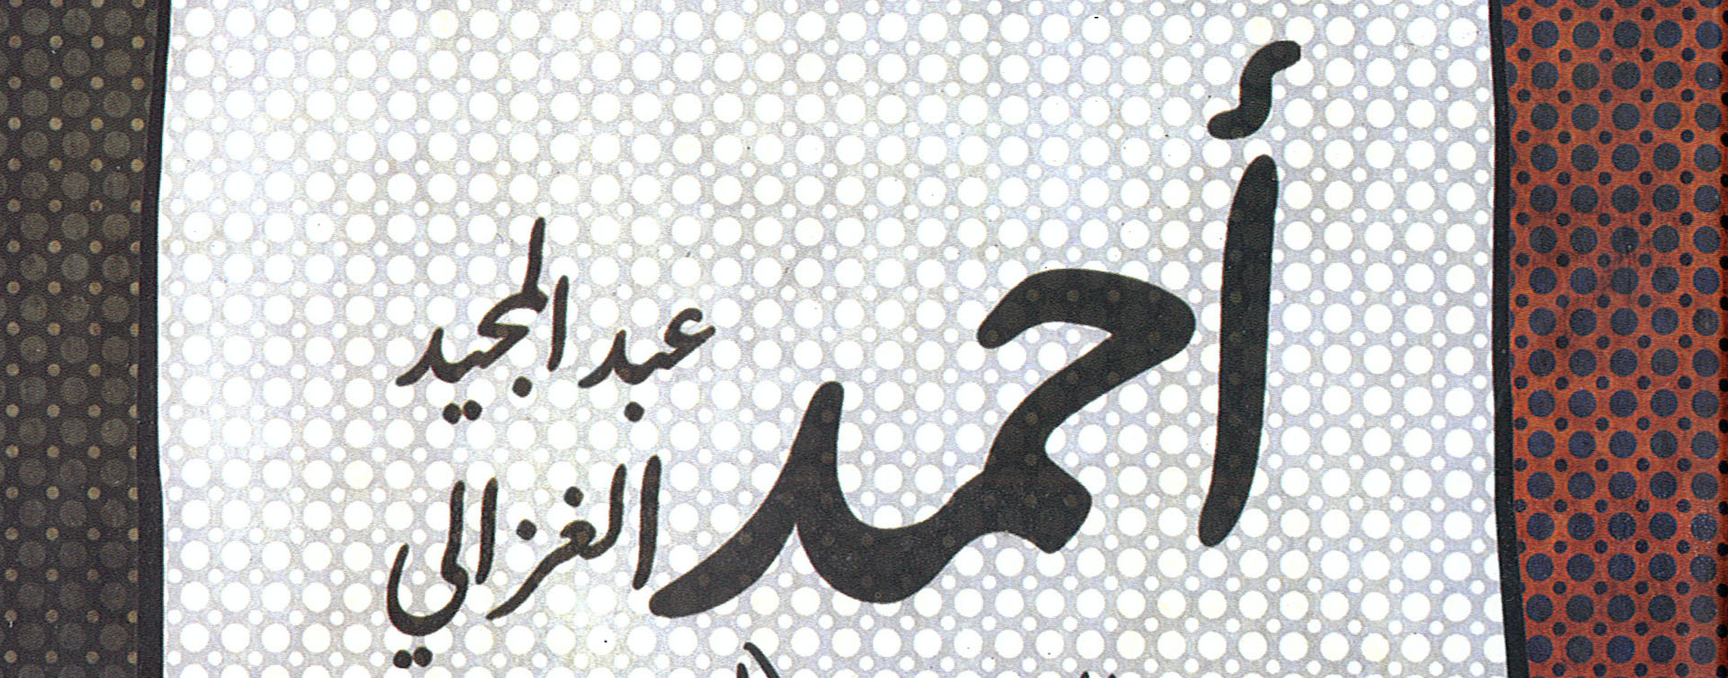 أحمد
عبد المجيد
الغزالي